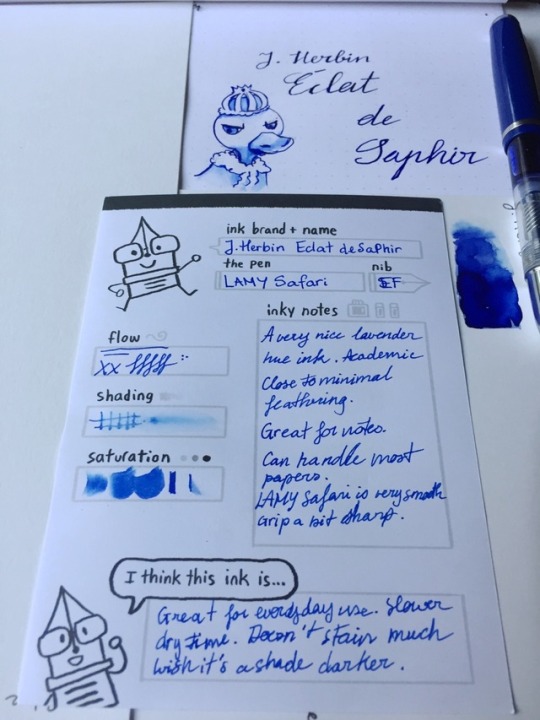 J. Herbin
Éclat
de
Saphir
ink brand + name
J. Herbin Eclat de Saphir
the pen
nib
LAMY Safari
EF
inky notes
flow
xx
shading
saturation
A very nice lavender
hue ink. Academic
Close to minimal
feathuring.
Great for notes.
Can handle most
papers.
LAMY Safari is very smooth
Grip a bit sharp.
I think this ink is...
Great for everyday use. Slower
dry time. Doesn't stain much
wish it's a shade darker.